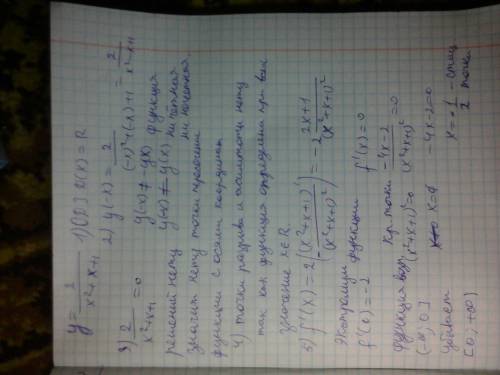 y = 2/(x²+x+1)   1) (D) D(x) = R
2) y(-x) = 2/((-x)²+(-x)+1) = 2/(x²-x+1)
y(-x) ≠ -y(x) функция
y(-x) ≠ y(x) ни чётная
ни нечетная.
3) 2/(x²+x+1) = 0
решений нету
значит нету точки пересечения
функции с осями координат
4) точки разрыва и асимптоты нету
так как функция определена при всех
значение x∈R.
5) f'(x) = 2((x²+x+1)'/-(x²+x+1)²) = -2 (2x+1)/(x²+x+1)²
Экстремум функции f'(x) = 0
f'(0) = -2
кр точки (-4x-2)/(x²+x+1)² = 0
функция возр.
(x²+x+1)² = 0   -4x-2=0
(-∞; 0]
x=0   x = -1/2 - стац
точка.
убывает
[0; +∞)